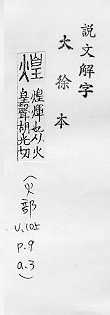 說文解字
大徐本
煌
煌煇也从火
皇聲胡光切
(火部
v.105
p.9
a.3)